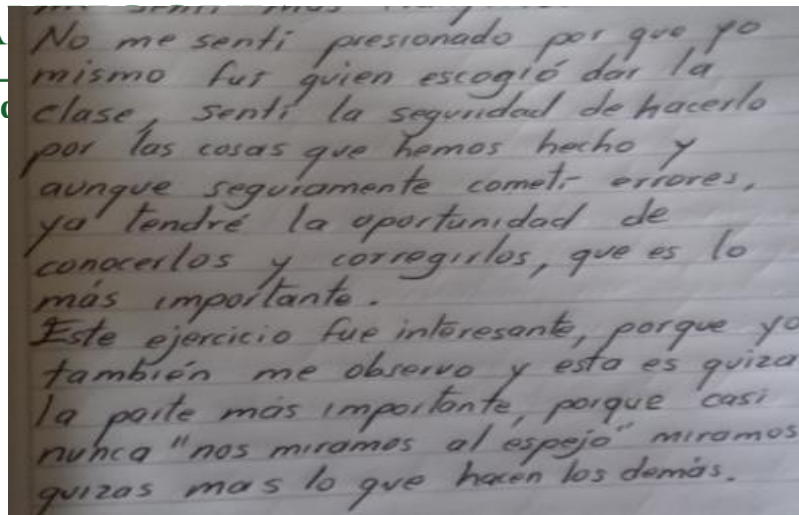 No me sentí presionado por que yo
mismo fui quien escogió dar la
clase, sentí la seguridad de hacerlo
por las cosas que hemos hecho y
aunque seguramente cometí errores,
ya tendré la oportunidad de
conocerlos y corregirlos, que es lo
más importante.
Este ejercicio fue interesante, porque yo
también me observo y esta es quiza
la parte más importante, porque casi
nunca "nos miramos al espejo" miramos
quizas mas lo que hacen los demás.